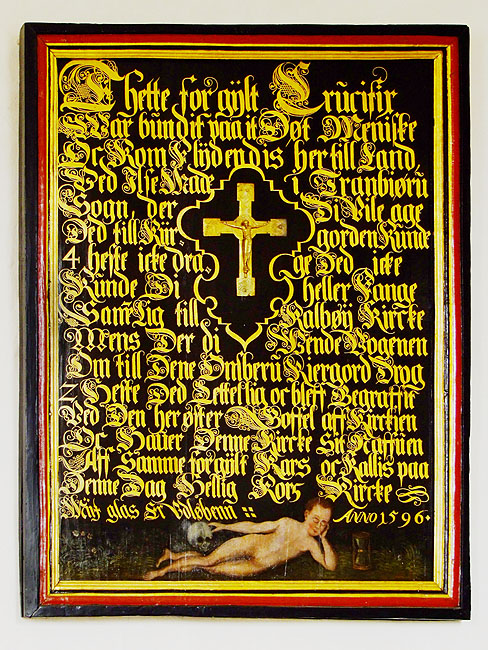 Thette forgÿlt Crucifix
War bundit paa it Døt Meniske
Oc Kom Flÿdendis her till Land,
Ved Ilse Made i Tranbiørũ
Sogn, der Di Vile age
Ded till Kir- gorden Kunde
4 heste icke dra- ge Ded icke
Kunde Di heller Fange
Sam̃Lig till Kalbøÿ Kircke
Mens Der di Wende Vogenen
Om till Dene Omberũ Kiergord Drog
2 Heste Ded Lettellig oc bleff Begraffit
Ved Den her øster Goffel aff Kirkien
Oc Hauer Denne Kircke Sit Naffuen
Aff Samme forgÿlt Kars oc Kallis paa
Denne Dag Hellig Kors Kircke
glas Er Vdløbenn ::
ANNO 1596